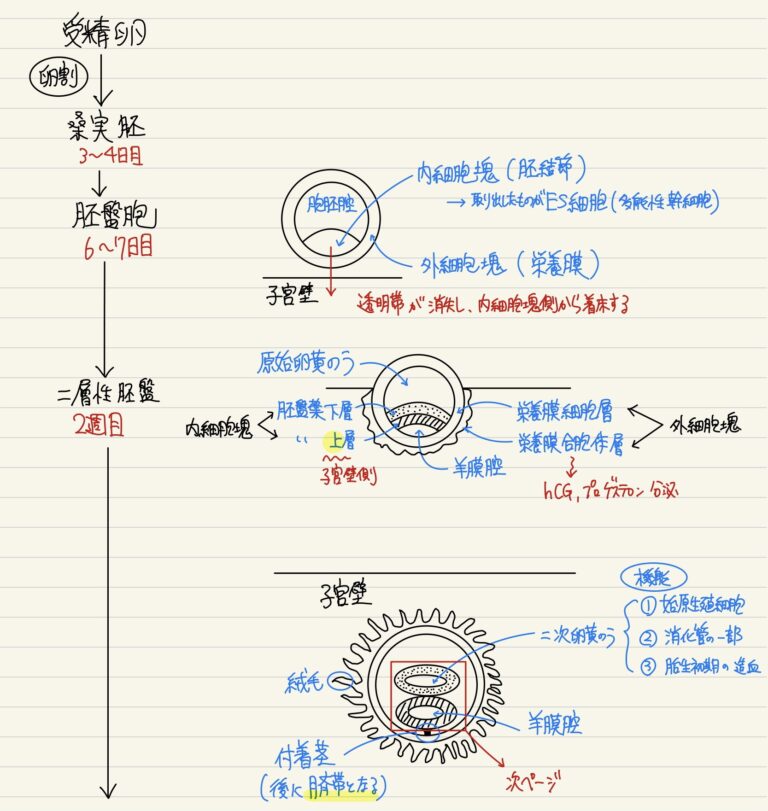 受精卵
卵割
桑実胚
3〜4日目
胚盤胞
6〜7日目
胞胚腔
内細胞塊（胚結節）
→ 取り出したものがES細胞（多能性幹細胞）
外細胞塊（栄養膜）
子宮壁
透明帯が消失し、内細胞塊側から着床する
二層性胚盤
2週目
原始卵黄のう
内細胞塊
胚盤葉下層
〃 上層
子宮壁側
羊膜腔
栄養膜細胞層
栄養膜合胞体層
外細胞塊
hCG, プロゲステロン分泌
子宮壁
機能
二次卵黄のう
① 始原生殖細胞
② 消化管の一部
③ 胎生初期の造血
絨毛
羊膜腔
付着茎
（後に臍帯となる）
次ページ